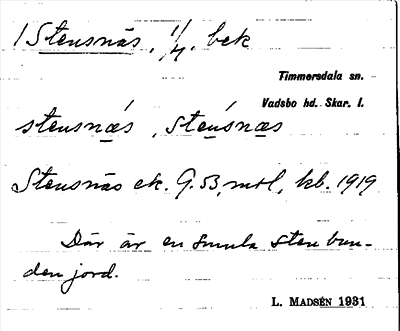 1 Stensnäs, 1/4, bek
Timmersdala sn.
Vadsbo hd. Skar. l.
stensnæs, stensnæs
Stensnäs ek. G. 53, mtl, kb. 1919
Där är en smula sten bun-
den jord.
L. MADSÉN 1931